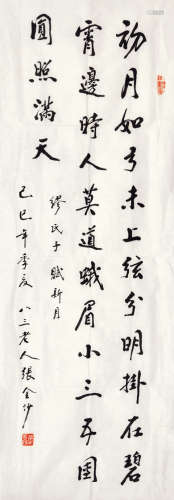 初月如弓未上弦分明掛在碧
霄邊時人莫道蛾眉小三五團
圓照滿天
繆氏子賦新月
己巳年季夏八三老人張